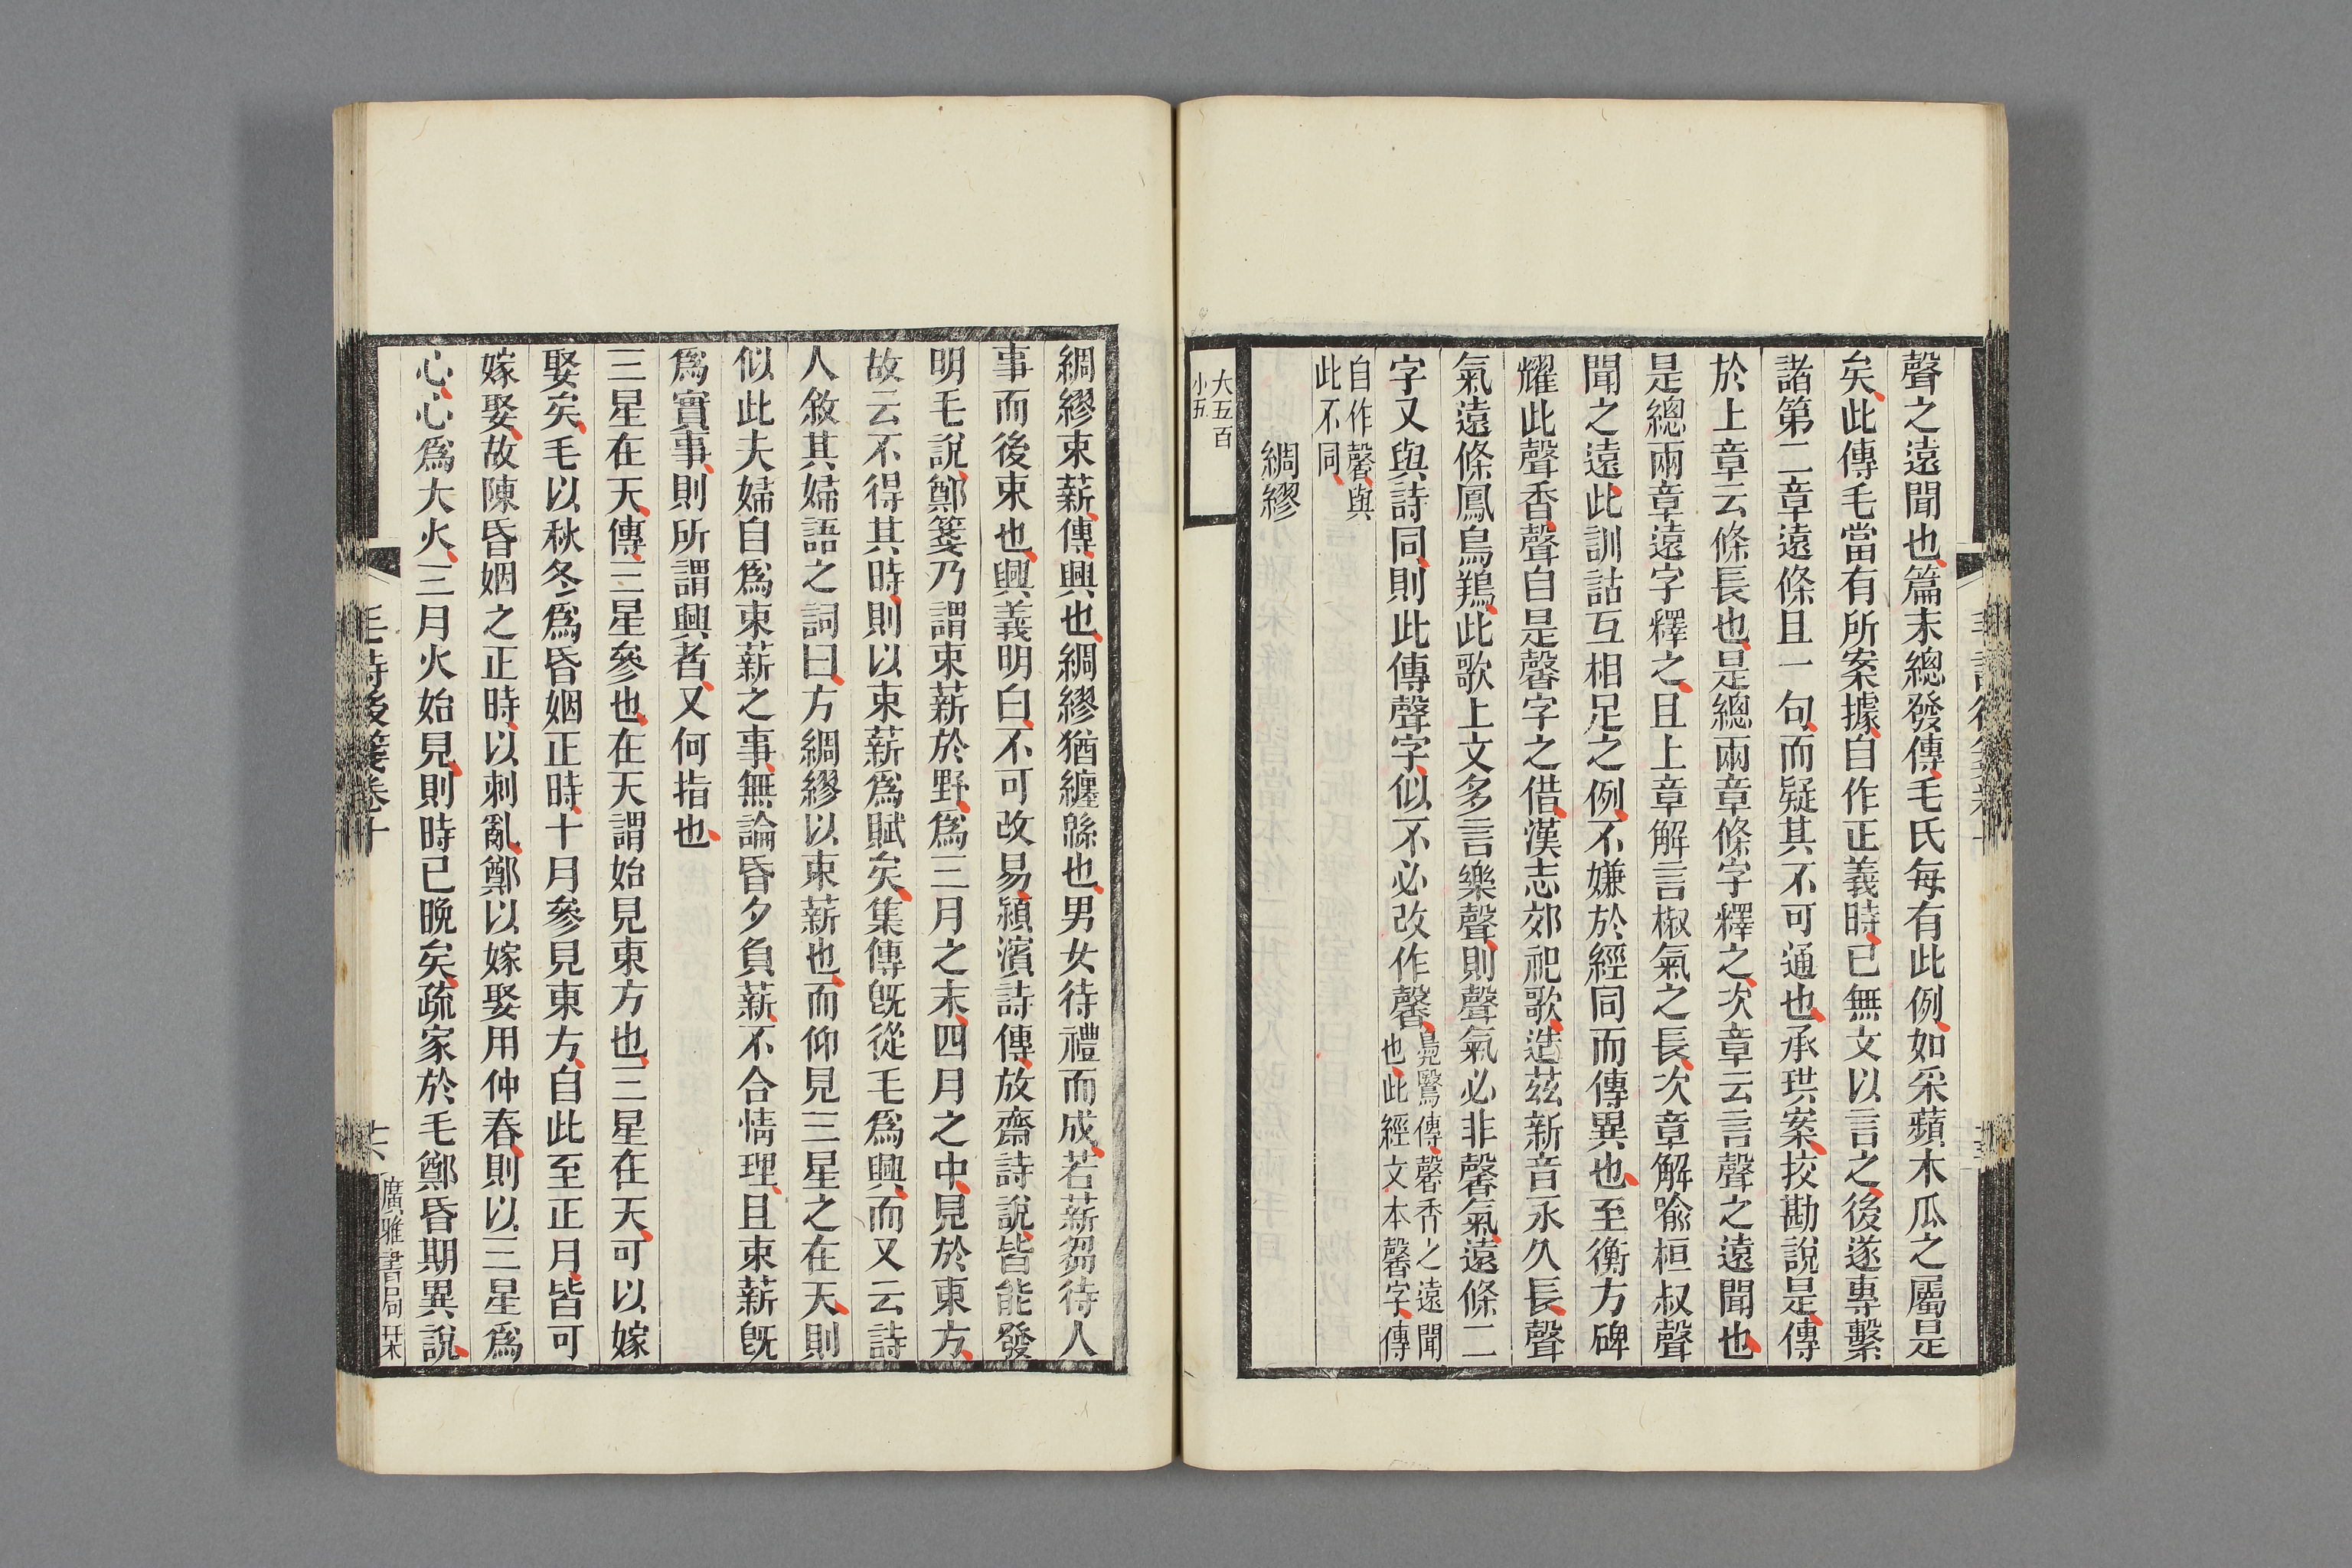 聲之遠聞也篇末總發傳毛氏每有此例如采蘋木瓜之屬是
矣此傳毛當有所案據自作正義時已無文以言之後遂專繫
諸第二章遠條且一句而疑其不可通也承珙案挍勘說是傳
於上章云條長也是總兩章條字釋之次章云言聲之遠聞也
是總兩章遠字釋之且上章解言椒氣之長次章解喻桓叔聲
聞之遠此訓詁互相足之例不嫌於經同而傳異也至衡方碑
耀此聲香聲自是馨字之借漢志郊祀歌造茲新音永久長聲
氣遠條鳳鳥鵹此歌上文多言樂聲則聲氣必非馨氣遠條二
字又與詩同則此傳聲字似不必改作馨
鳧鷖傳馨香之遠聞
也此經文本馨字傳
自作馨與
此不同
綢繆
大五百
小五
綢繆束薪傳興也綢繆猶纏緜也男女待禮而成若薪芻待人
事而後束也興義明白不可改易潁濱詩傳放齋詩說皆能發
明毛說鄭箋乃謂束薪於野爲三月之末四月之中見於東方
故云不得其時則以束薪爲賦矣集傳旣從毛爲興而又云詩
人敘其婦語之詞曰方綢繆以束薪也而仰見三星之在天則
似此夫婦自爲束薪之事無論昏夕負薪不合情理且束薪旣
爲實事則所謂興者又何指也
三星在天傳三星參也在天謂始見東方也三星在天可以嫁
娶矣毛以秋冬爲昏姻正時十月參見東方自此至正月皆可
嫁娶故陳昏姻之正時以刺亂鄭以嫁娶用仲春則以三星爲
心心爲大火三月火始見則時已晚矣疏家於毛鄭昏期異說
毛詩後箋卷十
廣雅書局栞